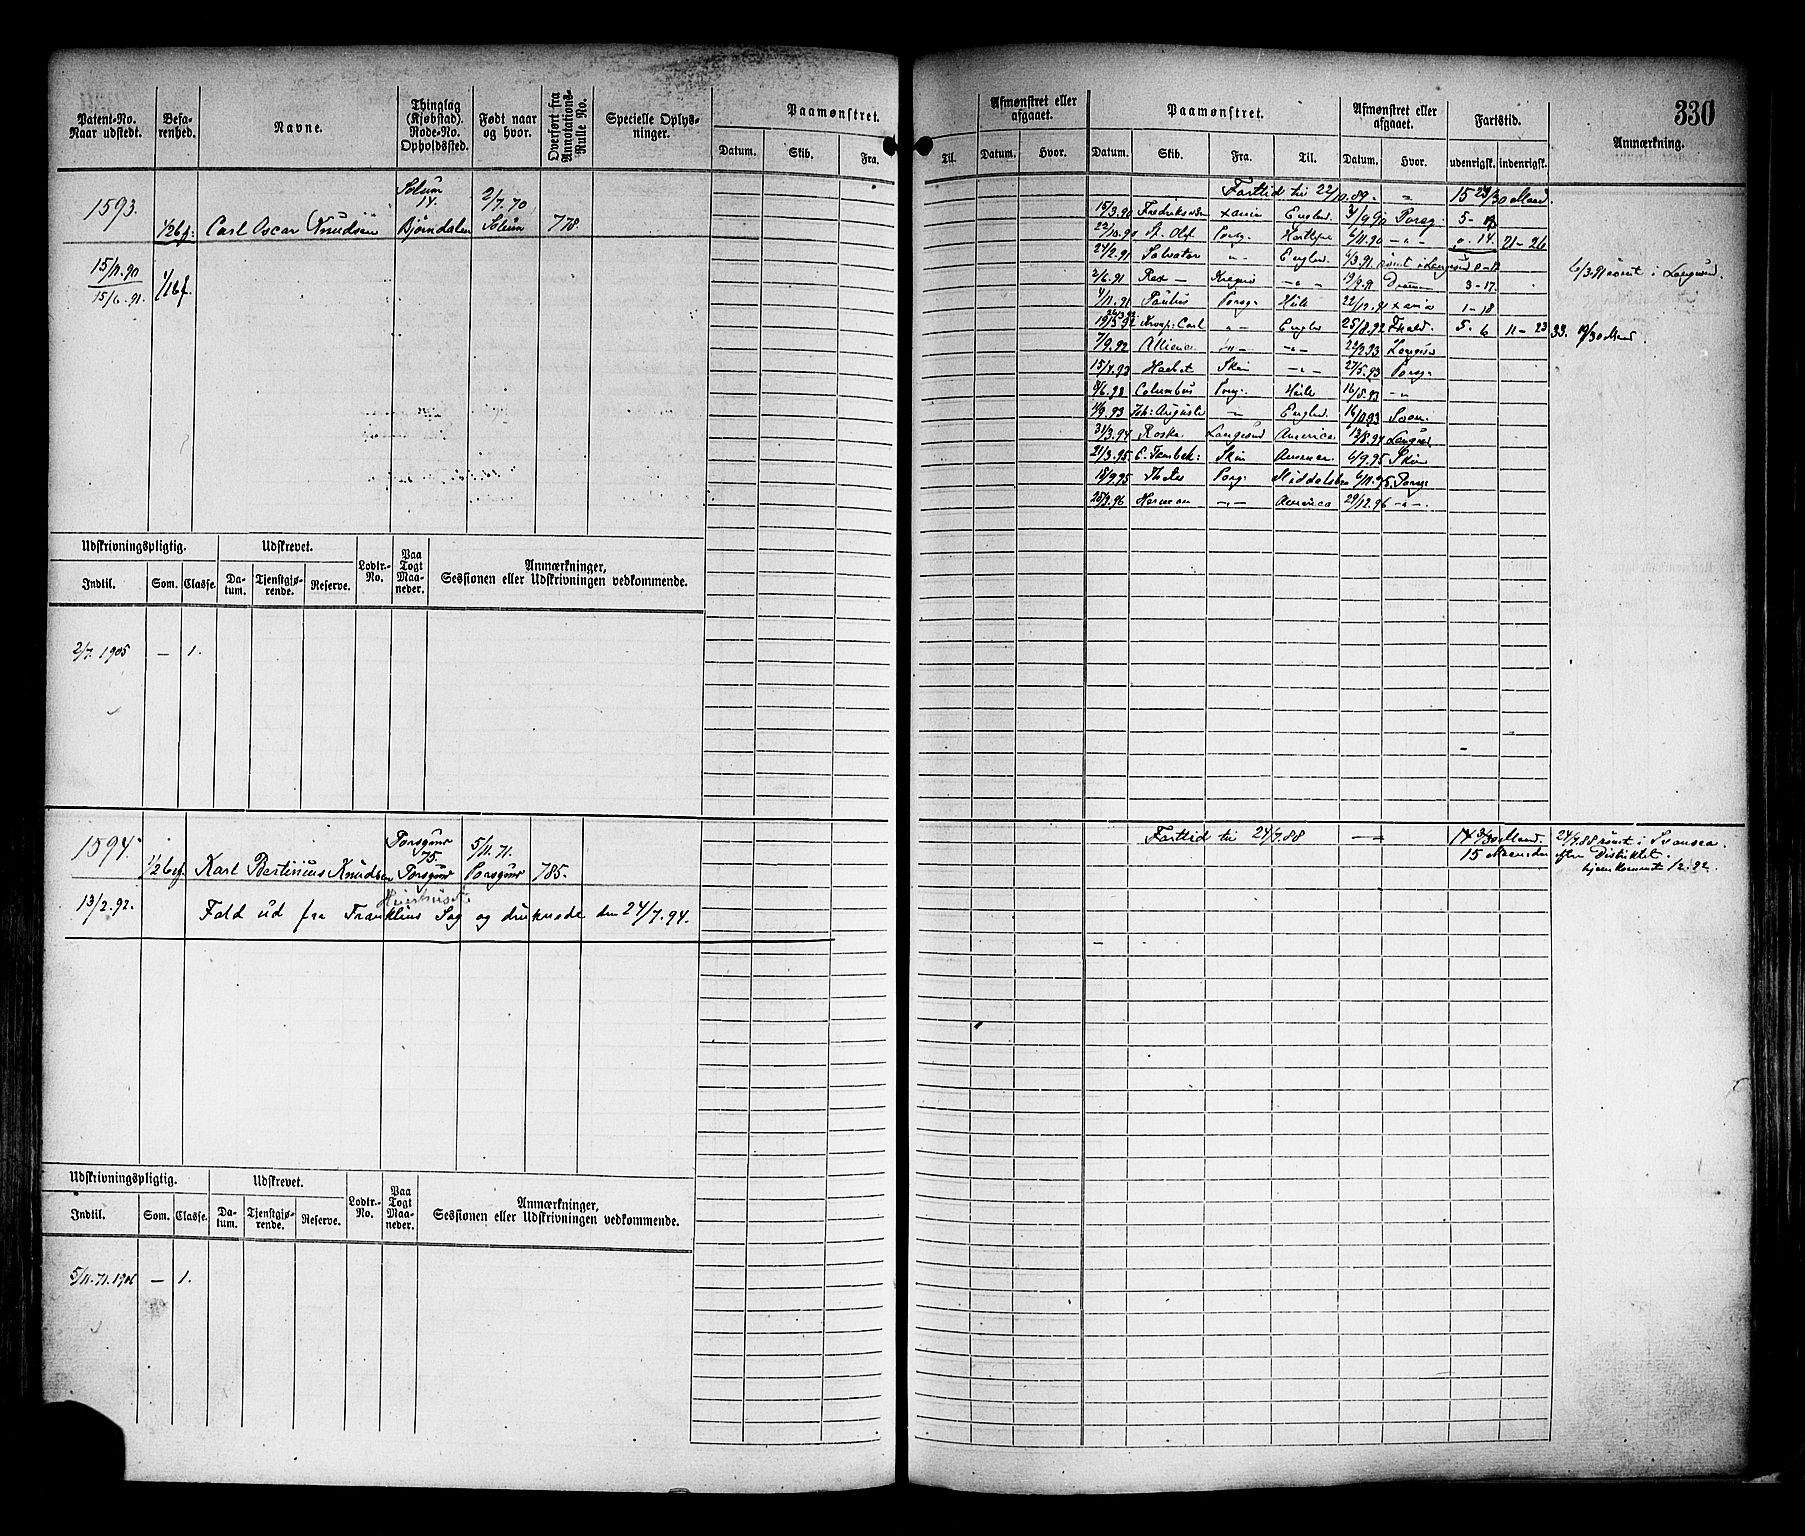 330
Patent-No. Naar udstedt.
Befarenhed.
Navne.
Thinglag (Kjøbstad). Rode-No. Opholdssted.
Født naar og hvor.
Overført fra Annotations-Rulle No.
Specielle Oplysninger.
Paamønstret.
Datum. Skib. Fra. Til.
Afmønstret eller afgaaet.
Datum. Hvor.
Paamønstret.
Datum. Skib. Fra. Til.
Afmønstret eller afgaaet.
Datum. Hvor.
Fartstid.
udenrigsk. indenrigsk.
Anmærkning.
1593. 1/2 bf. Carl Oscar Knudsen Solum 14. Bjørndalen 2/7.70 Solum 778.
15/11.90
15/6.91.
Farttid til 22/10.89. 15 Maaned
15/3.90 Fredriksværn Xania Engld. 3/9.90 Porsg. 5-
22/10.90 St. Olaf Porsg. 6/11.90 -"- 0.14. 21-26
24/2.91 Salvator " Engld. 6/3.91 rømt i Langesund
6/3.91 rømt i Langesund.
2/6.91 Rex Kragerø -"- 3-17.
4/11.91 Paulus Porsg. Hull 22/12.91 Xania 1-18
19/3.92 Carl -"- Engld 25/8.92 Frhald. 5. 6 11-23
7/9.92 Alliance -"- -"- Langesd
15/4.93 Skien -"- 27/5.93 Porsg.
8/6.93 Columbus Porsg. Hull 16/8.93 -"-
4/9.93 Augusta -"- Engld. 16/10.93
31/3.94 Roska Langesund America 13/8.94 Langesd
21/3.95 Skien 6/9.95 Skien
18/9.95 Thetis Porsg. Middelsbro 6/11.95 Porsg.
25/3.96 Herman -"- America 29/12.96 -"-.
Udskrivningspligtig.
Indtil. Som. Classe.
Udskrevet.
Datum. Tjenstgjørende. Reserve.
Lodtr.-No.
Paa Togt Maaneder.
Anmærkninger, Sessionen eller Udskrivningen vedkommende.
2/7.1905 — 1.
1594. 1/2 bef. Karl Bertinius Knudsen Porsgrund 75. Porsgrund 5/11.71. Porsgrund 785.
Farttid til 24/7.88 — 14 Maaned.
15 Maaneder
24/7.88 rømt i Swansea
efter Distriktet.
hjemkommet 12.92.
13/2.92.
Fald ud fra Franklins Sag og druknede den 24/7.94.
Udskrivningspligtig.
Indtil. Som. Classe.
Udskrevet.
Datum. Tjenstgjørende. Reserve.
Lodtr.-No.
Paa Togt Maaneder.
Anmærkninger, Sessionen eller Udskrivningen vedkommende.
5/11.71.1906 — 1.